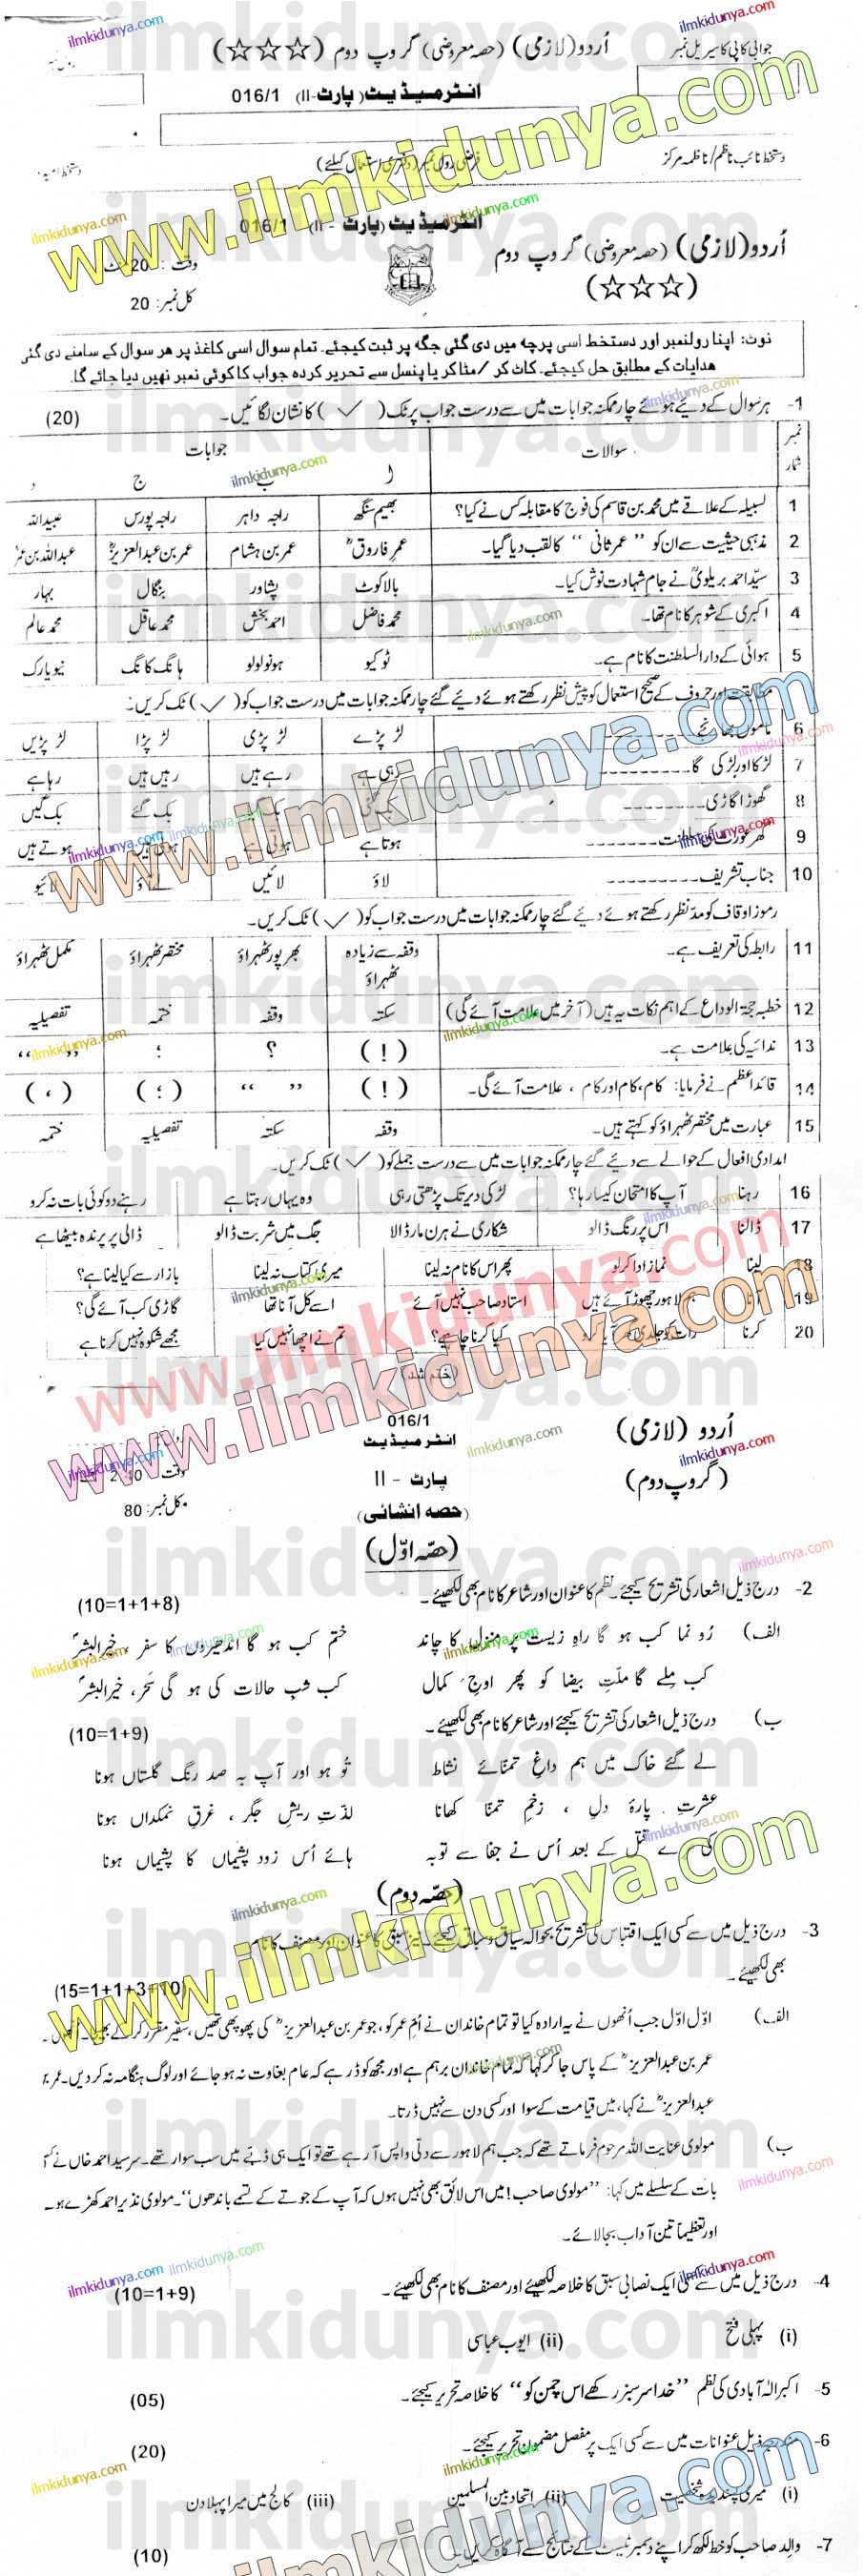 جوابی کاپی کا سیریل نمبر
اُردو (لازمی) (حصہ معروضی) گروپ دوم (☆☆☆)
انٹرمیڈیٹ (پارٹ-II) 016/1
دستخط نائب ناظم/ناظمہ مرکز
فرضی رولنمبر (دفتری استعمال کیلئے)
انٹرمیڈیٹ (پارٹ-II) 016/1
اُردو (لازمی) (حصہ معروضی) گروپ دوم
(☆☆☆)
وقت: 20
کل نمبر: 20
نوٹ: اپنا رولنمبر اور دستخط اسی پرچہ میں دی گئی جگہ پر ثبت کیجئے۔ تمام سوال اسی کاغذ پر ہر سوال کے سامنے دی گئی
ہدایات کے مطابق حل کیجئے۔ کاٹ کر / مٹا کر یا پنسل سے تحریر کردہ جواب کا کوئی نمبر نہیں دیا جائے گا۔
1- ہر سوال کے دیے ہوئے چار ممکنہ جوابات میں سے درست جواب پر ٹک (✓) کا نشان لگائیں۔ (20)
نمبر شمار سوالات جوابات
ا ب ج د
1 لسبیلہ کے علاقے میں محمد بن قاسم کی فوج کا مقابلہ کس نے کیا؟ بھیم سنگھ راجہ داہر راجہ پورس عبیداللہ
2 مذہبی حیثیت سے ان کو ”عمر ثانی“ کا لقب دیا گیا۔ عمر فاروقؓ عمر بن ہشام عمر بن عبدالعزیزؒ عبداللہ بن عمر
3 سیّد احمد بریلویؒ نے جام شہادت نوش کیا۔ بالاکوٹ پشاور بنگال بہار
4 اکبری کے شوہر کا نام تھا۔ محمد فاضل احمد بخش محمد عاقل محمد عالم
5 ہوائی کے دارالسلطنت کا نام ہے۔ ٹوکیو ہونولولو ہانگ کانگ نیویارک
مطابقت اور حروف کے صحیح استعمال کو پیش نظر رکھتے ہوئے دیئے گئے چار ممکنہ جوابات میں درست جواب کو (✓) ٹک کریں۔
6 ماموں بھانجے لڑ پڑے لڑ پڑی لڑ پڑا لڑ پڑیں
7 لڑکا اور لڑکی گا ــــــ رہی ہے رہے ہیں رہیں ہیں رہا ہے
8 گھوڑا گاڑی ــــــ بک گئے بک گئیں
9 گھر عورت کی ــــــ ہوتا ہے ہوتی ہے ہوتے ہیں
10 جناب تشریف ــــــ لاؤ لائیں
رموز اوقاف کو مدّنظر رکھتے ہوئے دیئے گئے چار ممکنہ جوابات میں درست جواب کو (✓) ٹک کریں۔
11 رابطہ کی تعریف ہے۔ وقفہ سے زیادہ ٹھہراؤ بھرپور ٹھہراؤ مختصر ٹھہراؤ مکمل ٹھہراؤ
12 خطبہ حجۃ الوداع کے اہم نکات یہ ہیں (آخر میں علامت آئے گی) سکتہ وقفہ ختمہ تفصیلیہ
13 ندائیہ کی علامت ہے۔ (!) ؟ ؛ “ ”
14 قائداعظم نے فرمایا: کام، کام اور کام، علامت آئے گی۔ (!) “ ” (؛) (،)
15 عبارت میں مختصر ٹھہراؤ کو کہتے ہیں۔ وقفہ سکتہ تفصیلیہ ختمہ
امدادی افعال کے حوالے سے دیئے گئے چار ممکنہ جوابات میں سے درست جملے کو (✓) ٹک کریں۔
16 رہنا آپ کا امتحان کیسا رہا؟ لڑکی دیر تک پڑھتی رہی وہ یہاں رہتا ہے رہنے دو کوئی بات نہ کرو
17 ڈالنا اس پر رنگ ڈالو شکاری نے ہرن مار ڈالا جگ میں شربت ڈالو ڈالی پر پرندہ بیٹھا ہے
18 لینا نماز ادا کرلو پھر اس کا نام نہ لینا میری کتاب نہ لینا بازار سے کیا لینا ہے؟
19 آنا ہم لاہور چھوڑ آئے ہیں استاد صاحب نہیں آئے اسے کل آنا تھا گاڑی کب آئے گی؟
20 کرنا کیا کرنا چاہیے؟ تم نے اچھا نہیں کیا مجھے شکوہ نہیں کرنا ہے
(ختم شد)
اُردو (لازمی)
(گروپ دوم)
016/1
انٹرمیڈیٹ
پارٹ - II
(حصہ انشائی)
کل نمبر: 80
(حصّہ اوّل)
2- درج ذیل اشعار کی تشریح کیجئے۔ نظم کا عنوان اور شاعر کا نام بھی لکھیئے۔ (10=1+1+8)
الف) رُونما کب ہو گا راہِ زیست پر منزل کا چاند ختم کب ہو گا اندھیروں کا سفر، خیرالبشرؐ
کب ملے گا ملّتِ بیضا کو پھر اوجِ کمال کب شبِ حالات کی ہو گی سَحر، خیرالبشرؐ
ب) درج ذیل اشعار کی تشریح کیجئے اور شاعر کا نام بھی لکھیئے۔ (10=1+9)
لے گئے خاک میں ہم داغِ تمنّائے نشاط تُو ہو اور آپ بہ صد رنگ گلستاں ہونا
عشرتِ پارۂ دل، زخمِ تمنّا کھانا لذّتِ ریشِ جگر، غرقِ نمکداں ہونا
کی مرے قتل کے بعد اُس نے جفا سے توبہ ہائے اُس زود پشیماں کا پشیماں ہونا
(حصّہ دوم)
3- درج ذیل میں سے کسی ایک اقتباس کی تشریح بحوالہ سیاق و سباق کیجئے۔ نیز سبق کا عنوان اور مصنف کا نام
بھی لکھیئے۔ (15=1+1+3+10)
الف) اوّل اوّل جب اُنھوں نے یہ ارادہ کیا تو تمام خاندان نے اُمّ عمر کو، جو عمر بن عبدالعزیزؒ کی پھوپھی تھیں، سفیر مقرر کر کے بھیجا۔
عمر بن عبدالعزیزؒ کے پاس جا کر کہا کہ تمام خاندان برہم ہے اور مجھ کو ڈر ہے کہ عام بغاوت نہ ہو جائے اور لوگ ہنگامہ نہ کر دیں۔ عمر بن
عبدالعزیزؒ نے کہا، میں قیامت کے سوا اور کسی دن سے نہیں ڈرتا۔
ب) مولوی عنایت اللہ مرحوم فرماتے تھے کہ جب ہم لاہور سے دلّی واپس آ رہے تھے تو ایک ہی ڈبّے میں سب سوار تھے۔ سرسید احمد خاں نے
بات کے سلسلے میں کہا: ”مولوی صاحب! میں اس لائق بھی نہیں ہوں کہ آپ کے جوتے کے تسمے باندھوں“۔ مولوی نذیر احمد کھڑے ہو
اور تعظیماً تین آداب بجا لائے۔
4- درج ذیل میں سے کسی ایک نصابی سبق کا خلاصہ لکھیئے اور مصنف کا نام بھی لکھیئے۔ (10=1+9)
(i) پہلی فتح (ii) ایوب عباسی
5- اکبر الٰہ آبادی کی نظم ”خدا سرسبز رکھے اس چمن کو“ کا خلاصہ تحریر کیجئے۔ (05)
6- مندرجہ ذیل عنوانات میں سے کسی ایک پر مفصل مضمون تحریر کیجئے۔ (20)
(i) میری پسندیدہ شخصیت (ii) اتحاد بین المسلمین (iii) کالج میں میرا پہلا دن
7- والد صاحب کو خط لکھ کر اپنے دسمبر ٹیسٹ کے نتائج سے آگاہ کریں۔ (10)
www.ilmkidunya.com